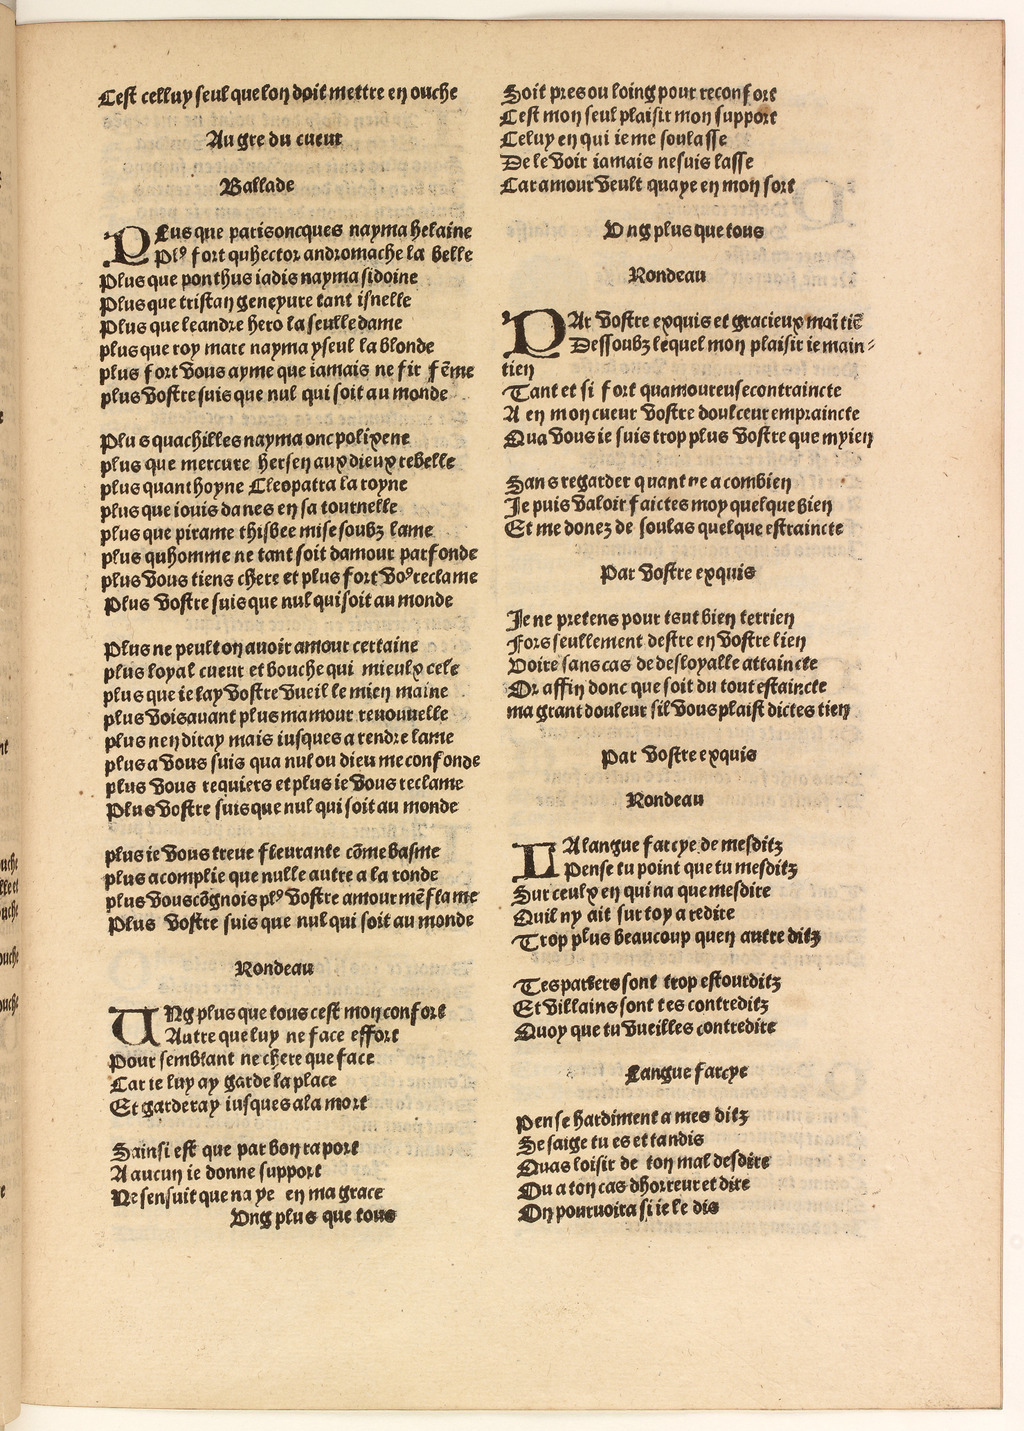 Cest celluy seul que lon doit mettre en ouche
Au gre du cueur
Ballade
PLus que paris oncques nayma helaine
Plꝰ fort qu hector andromache la belle
Plus que ponthus iadis nayma sidoine
Plus que tristan geneyure tant isnelle
Plus que leandre hero la seulle dame
plus que roy marc nayma yseul la blonde
plus fort vous ayme que iamais ne fit fẽme
plus vostre suis que nul qui soit au monde
Plus quachilles nayma onc polixene
plus que mercure hersen aux dieux rebelle
plus quanthoyne Cleopatra la royne
plus que iouis danes en sa tournelle
plus que pirame thisbee mise soubz lame
plus quhomme ne tant soit damour parfonde
plus vous tiens chere et plus fort voꝰ reclame
Plus vostre suis que nul qui soit au monde
Plus ne peult on auoir amour certaine
plus loyal cueur et bouche qui mieulx cele
plus que ie lay vostre vueil le mien maine
plus vois auant plus mamour renouuelle
plus nen diray mais iusques a rendre lame
plus a vous suis qua nul ou dieu me confonde
plus vous requiers et plus ie vous reclame
Plus vostre suis que nul qui soit au monde
plus ie vous treue fleurante cõme basme
plus acomplie que nulle autre a la ronde
plus vous cõgnois plꝰ vostre amour mẽflame
Plus vostre suis que nul qui soit au monde
Rondeau
UNg plus que tous cest mon confort
Autre que luy ne face effort
Pour semblant ne chere que face
Car ie luy ay garde la place
Et garderay iusques a la mort
Sainsi est que par bon raport
A aucun ie donne support
Ne sensuit que naye en ma grace
Vng plus que tous
Soit pres ou loing pour reconfort
Cest mon seul plaisir mon support
Celuy en qui ie me soulasse
De le voir iamais ne suis lasse
Car amour veult quaye en mon sort
Vng plus que tous
Rondeau
PAr vostre exquis et gracieux maītiē
Dessoubz lequel mon plaisir ie main⸗
tien
Tant et si fort quamoureuse contraincte
A en mon cueur vostre doulceur empraincte
Qua vous ie suis trop plus vostre que myien
Sans regarder quant ne a combien
Je puis valoir faictes moy quelque bien
Et me donez de soulas quelque estraincte
Par vostre exquis
Je ne pretens pour tout bien terrien
Fors seullement destre en vostre lien
Voire sans cas de desloyalle attaincte
Or affin donc que soit du tout estaincte
ma grant douleur sil vous plaist dictes tien
Par vostre exquis
Rondeau
LA langue farcye de mesditz
Pense tu point que tu mesditz
Sur ceulx en qui na que mesdire
Quil ny ait sur toy a redire
Trop plus beaucoup quen autre ditz
Tes parlers sont trop estourditz
Et villains sont tes contreditz
Quoy que tu vueilles contredire
Langue farcye
Pense hardiment a mes ditz
Se saige tu es et tandis
Quas loisir de ton mal desdire
Ou a ton cas dhorreur et dire
On pouruoira si ie le dis